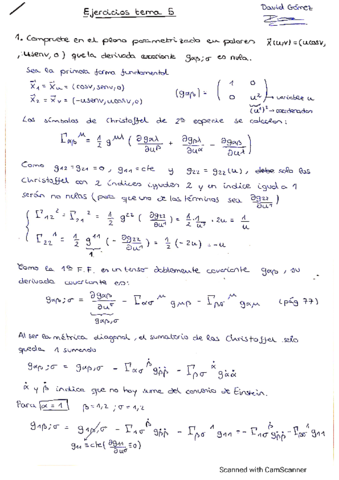 Ejercicios tema 5
David Gómez
1. Compruebe en el plano parametrizado en polares x⃗(u,v)=(ucosv,
usenv, 0) que la derivada covariante gαβ;σ es nula.
Sea la primera forma fundamental
x⃗₁ = x⃗ᵤ = (cosv, senv, 0)
x⃗₂ = x⃗ᵥ = (-usenv, ucosv, 0)
(gαβ) = ( 1 0
0 u² ) → variable u
Los símbolos de Christoffel de 2ª especie se calculan:
Γαβ^μ = 1/2 g^μλ ( ∂gαλ/∂u^β + ∂gβλ/∂u^α - ∂gαβ/∂u^λ )
Como g₁₂=g₂₁=0, g₁₁=cte y g₂₂=g₂₂(u), debe solo los
Christoffel con 2 índices iguales 2 y un índice igual a 1
serán no nulos (para que uno de los términos sea ∂g₂₂/∂u¹)
Γ₁₂² = Γ₂₁² = 1/2 g²² (∂g₂₂/∂u¹) = 1/2 · 1/u² · 2u = 1/u
Γ₂₂¹ = 1/2 g¹¹ (-∂g₂₂/∂u¹) = 1/2 (-2u) = -u
1
Como la 1ª F.F. es un tensor doblemente covariante gαβ, su
derivada covariante es:
gαβ;σ = ∂gαβ/∂u^σ - Γασ^μ gμβ - Γβσ^μ gαμ (pág 77)
gαβ,σ
Al ser la métrica diagonal, el sumatorio de los Christoffel solo
queda 1 sumando
gαβ;σ = gαβ,σ - Γασ^β̇ gβ̇β̇ - Γβσ^α̇ gα̇α̇
α̇ y β̇ indica que no hay suma del convenio de Einstein.
Para α=1 β=1,2 ; σ=1,2
g₁β;σ = g₁β,σ - Γ₁σ^β̇ gβ̇β̇ - Γβσ¹ g₁₁ = -Γ₁σ^β̇ gβ̇β̇ - Γβσ¹ g₁₁
g₁₁=cte (∂g₁₁/∂u^σ=0)
Scanned with CamScanner